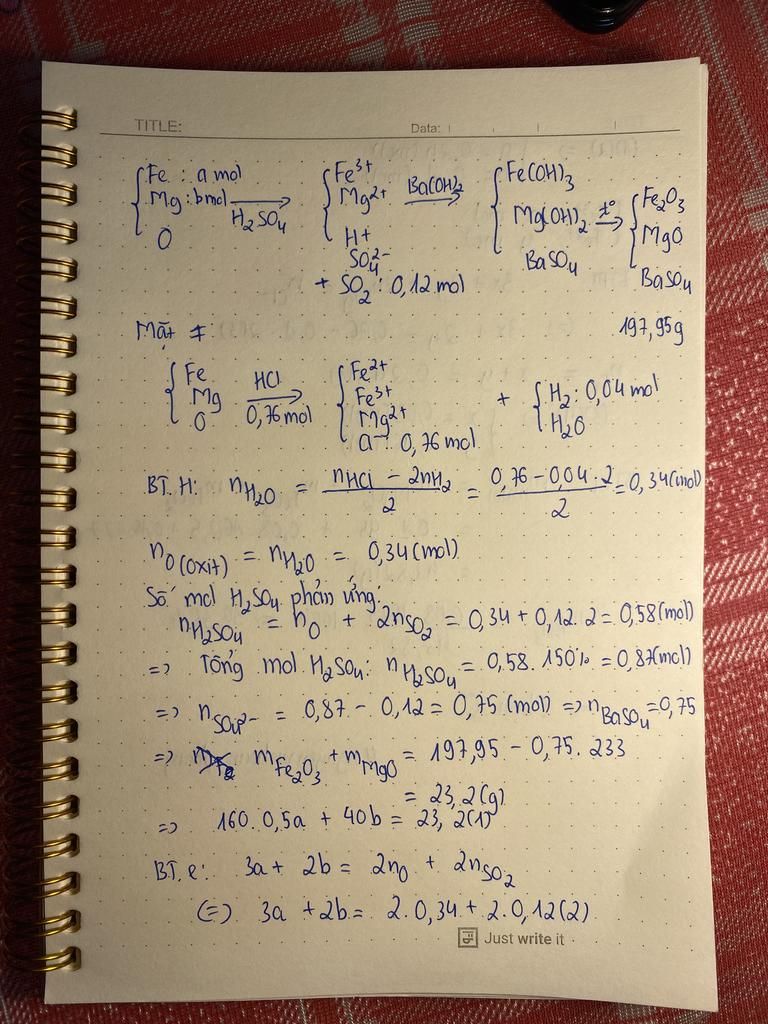 TITLE: Data:
{Fe : a mol Mg : b mol O →H₂SO₄ {Fe³⁺ Mg²⁺ H⁺ SO₄²⁻ Ba(OH)₂→ {Fe(OH)₃ Mg(OH)₂ BaSO₄ t°→ {Fe₂O₃ MgO BaSO₄
+ SO₂ : 0,12 mol
Mặt ≠ 197,95g
{Fe Mg O HCl→0,76 mol {Fe²⁺ Fe³⁺ Mg²⁺ Cl⁻ : 0,76 mol + {H₂ : 0,04 mol H₂O
BT. H: nH₂O = (nHCl − 2nH₂)/2 = (0,76 − 0,04 . 2)/2 = 0,34 (mol)
nO(oxit) = nH₂O = 0,34 (mol)
Số mol H₂SO₄ phản ứng:
nH₂SO₄ = nO + 2nSO₂ = 0,34 + 0,12 . 2 = 0,58 (mol)
=> Tổng mol H₂SO₄: nH₂SO₄ = 0,58 . 150% = 0,87 (mol)
=> nSO₄²⁻ = 0,87 − 0,12 = 0,75 (mol) => nBaSO₄ = 0,75
=> mFe₂O₃ + mMgO = 197,95 − 0,75 . 233
= 23,2 (g)
=> 160. 0,5a + 40b = 23,2 (1)
BT. e: 3a + 2b = 2nO + 2nSO₂
(=) 3a + 2b = 2. 0,34 + 2. 0,12 (2)
Just write it